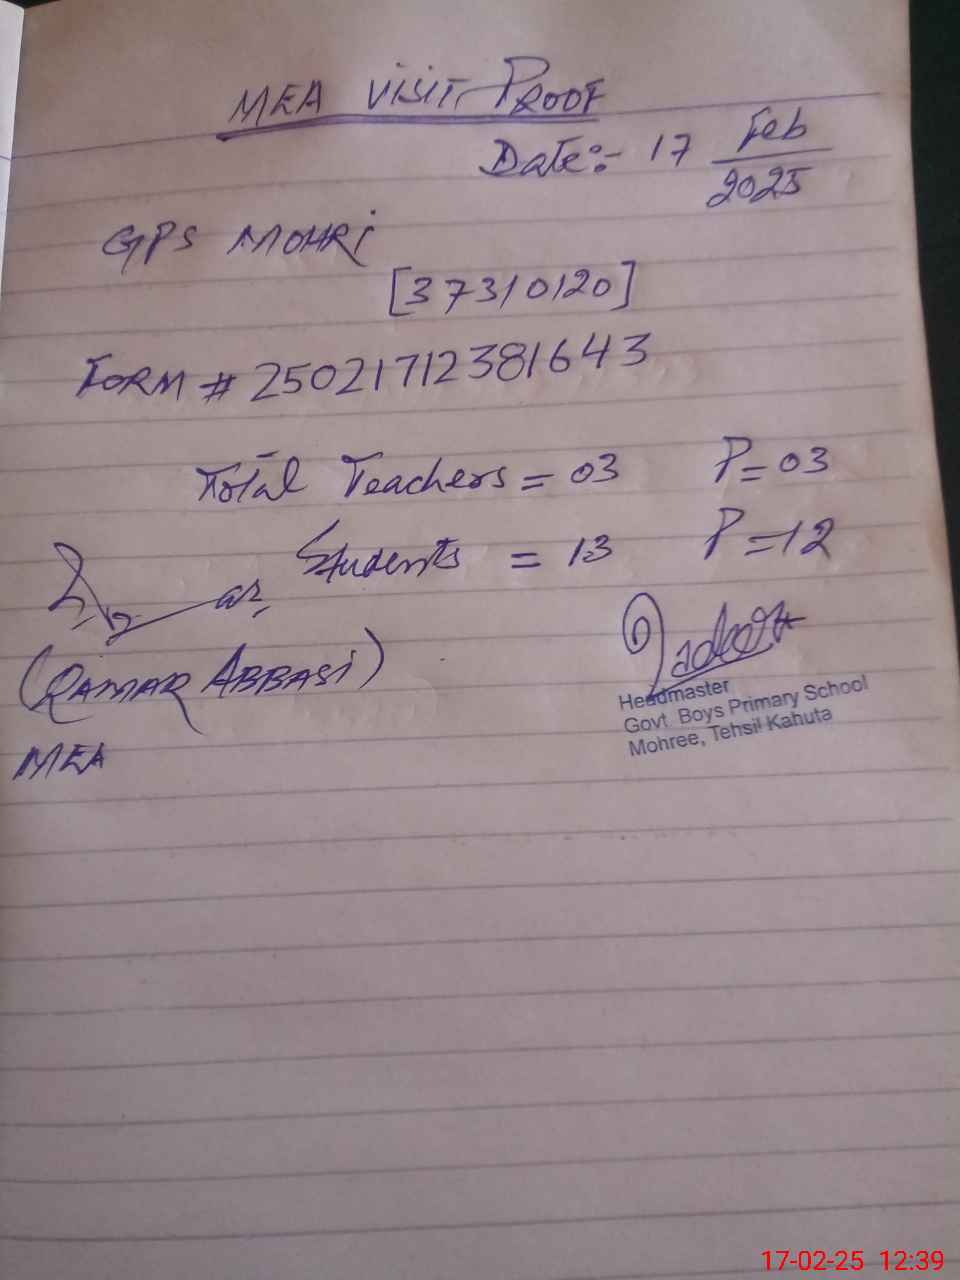 MEA VISIT PROOF
Date:- 17 Feb
2025
GPS MOHRi
[37310120]
FORM # 25021712381643
Total Teachers = 03 P=03
Students = 13 P=12
(QAMAR ABBASi)
MEA
Headmaster
Govt. Boys Primary School
Mohree, Tehsil Kahuta
17-02-25 12:39